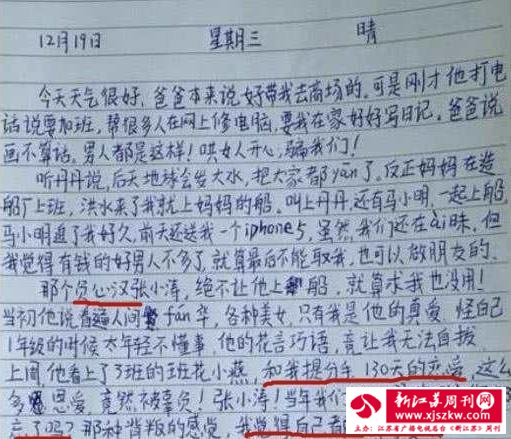 12月19日 星期三 晴
今天天气很好，爸爸本来说好带我去商场的，可是刚才他打电
话说要加班，帮很多人在网上修电脑，要我在家好好写日记。爸爸说
画不算话，男人都是这样！哄女人开心，骗我们！
听丹丹说，后天地球会发大水，把大家都yān了，反正妈妈在造
船厂上班，洪水来了我就上妈妈的船。叫上丹丹，还有马小明，一起上船，
马小明追了我好久，前天还送我一个iphone5，虽然我们还在ài昧，但
我觉得有钱的好男人不多了，就算最后不能取我，也可以做朋友的。
那个负心汉张小涛，绝不让他上船，就算求我也没用！
当初他说看遍人间fán华，各种美女，只有我是他的真爱，怪自己
1年级的时候太年轻不懂事，他的花言巧语，竟让我无法自拨
上周，他看上了3班的班花小燕，和我提分手，130天的恋爱，这么
多恩爱，竟然不辜负！张小涛！当年我
忘了吗？那种背叛的感觉，我觉得自己
新江苏周刊网
www.xjszkw.com
主办：江苏省广播电视总台《新江苏》周刊